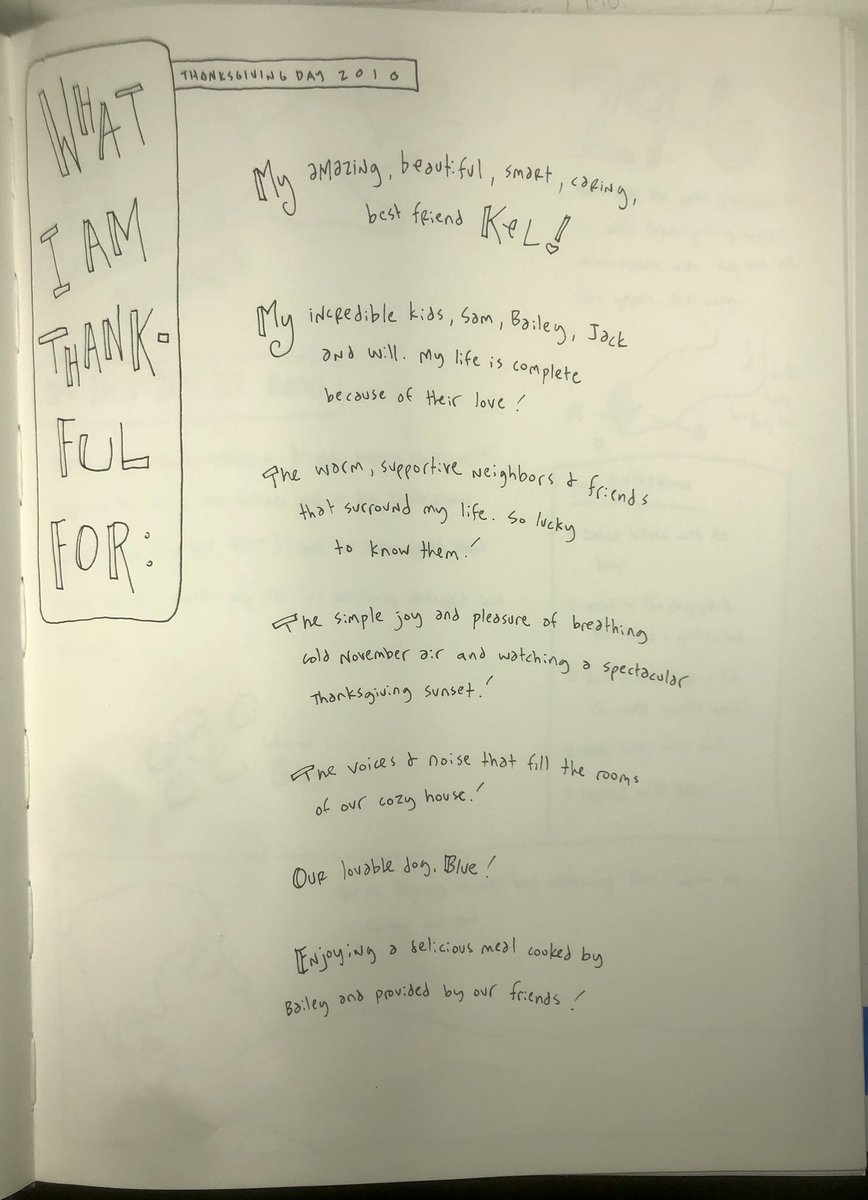 WHAT
I AM
THANK-
FUL
FOR:
THANKSGIVING DAY 2010
My amazing, beautiful, smart, caring,
best friend Kel!
My incredible kids, Sam, Bailey, Jack
and Will. My life is complete
because of their love!
The warm, supportive neighbors & friends
that surround my life. So lucky
to know them!
The simple joy and pleasure of breathing
cold November air and watching a spectacular
Thanksgiving sunset!
The voices & noise that fill the rooms
of our cozy house!
Our lovable dog, Blue!
Enjoying a delicious meal cooked by
Bailey and provided by our friends!